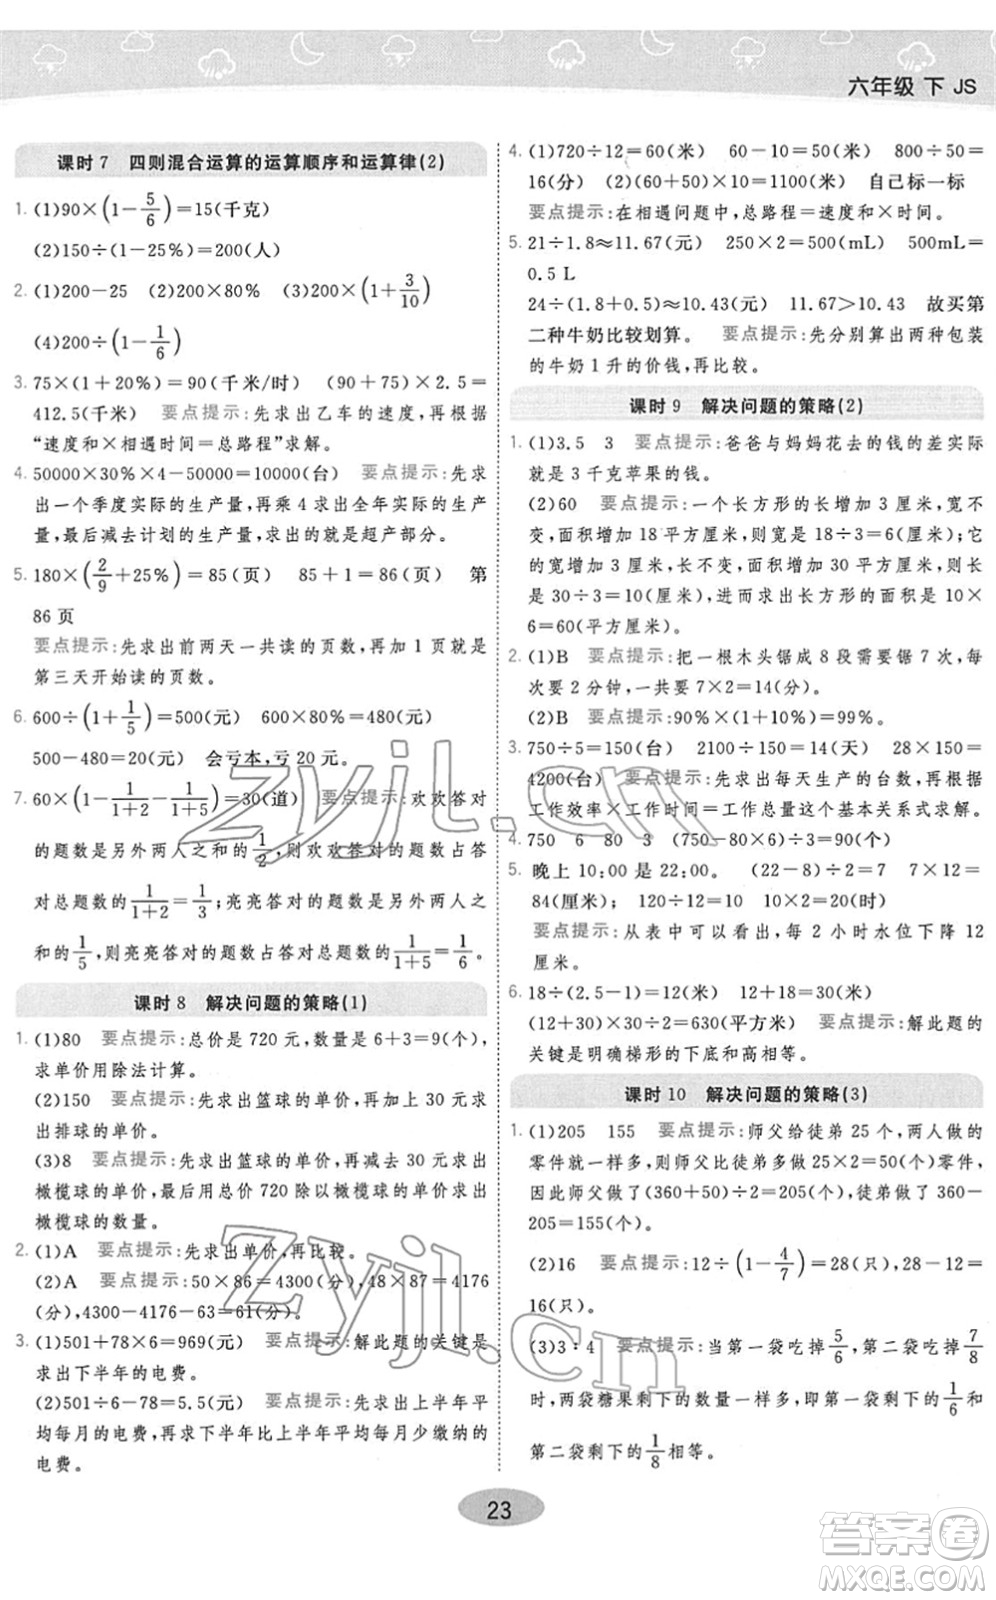 六年级 下 JS
课时 7 四则混合运算的运算顺序和运算律(2)
1. (1)90×(1－5/6)＝15(千克)
(2)150÷(1－25%)＝200(人)
2. (1)200－25 (2)200×80% (3)200×(1＋3/10)
(4)200÷(1－1/6)
3. 75×(1＋20%)＝90(千米/时) (90＋75)×2.5＝
412.5(千米) 要点提示:先求出乙车的速度,再根据
“速度和×相遇时间＝总路程”求解。
4. 50000×30%×4－50000＝10000(台) 要点提示:先求
出一个季度实际的生产量,再乘 4 求出全年实际的生产
量,最后减去计划的生产量,求出的就是超产部分。
5. 180×(2/9＋25%)＝85(页) 85＋1＝86(页) 第
86 页
要点提示:先求出前两天一共读的页数,再加 1 页就是
第三天开始读的页数。
6. 600÷(1＋1/5)＝500(元) 600×80%＝480(元)
500－480＝20(元) 会亏本,亏 20 元。
7. 60×(1－1/(1＋2)－1/(1＋5))＝30(道) 要点提示:欢欢答对
的题数是另外两人之和的1/2,则欢欢答对的题数占答
对总题数的1/(1＋2)＝1/3;亮亮答对的题数是另外两人之
和的1/5,则亮亮答对的题数占答对总题数的1/(1＋5)＝1/6。
课时 8 解决问题的策略(1)
1. (1)80 要点提示:总价是 720 元,数量是 6＋3＝9(个),
求单价用除法计算。
(2)150 要点提示:先求出篮球的单价,再加上 30 元求
出排球的单价。
(3)8 要点提示:先求出篮球的单价,再减去 30 元求出
橄榄球的单价,最后用总价 720 除以橄榄球的单价求出
橄榄球的数量。
2. (1)A 要点提示:先求出单价,再比较。
(2)A 要点提示:50×86＝4300(分),48×87＝4176
(分),4300－4176－63＝61(分)。
3. (1)501＋78×6＝969(元) 要点提示:解此题的关键是
求出下半年的电费。
(2)501÷6－78＝5.5(元) 要点提示:先求出上半年平
均每月的电费,再求下半年比上半年平均每月少缴纳的
电费。
4. (1)720÷12＝60(米) 60－10＝50(米) 800÷50＝
16(分) (2)(60＋50)×10＝1100(米) 自己标一标
要点提示:在相遇问题中,总路程＝速度和×时间。
5. 21÷1.8≈11.67(元) 250×2＝500(mL) 500mL＝
0.5 L
24÷(1.8＋0.5)≈10.43(元) 11.67＞10.43 故买第
二种牛奶比较划算。 要点提示:先分别算出两种包装
的牛奶 1 升的价钱,再比较。
课时 9 解决问题的策略(2)
1. (1)3.5 3 要点提示:爸爸与妈妈花去的钱的差实际
就是 3 千克苹果的钱。
(2)60 要点提示:一个长方形的长增加 3 厘米,宽不
变,面积增加 18 平方厘米,则宽是 18÷3＝6(厘米);它
的宽增加 3 厘米,长不变,面积增加 30 平方厘米,则长
是 30÷3＝10(厘米),进而求出长方形的面积是 10×
6＝60(平方厘米)。
2. (1)B 要点提示:把一根木头锯成 8 段需要锯 7 次,每
次要 2 分钟,一共要 7×2＝14(分)。
(2)B 要点提示:90%×(1＋10%)＝99%。
3. 750÷5＝150(台) 2100÷150＝14(天) 28×150＝
4200(台) 要点提示:先求出每天生产的台数,再根据
工作效率×工作时间＝工作总量这个基本关系式求解。
4. 750 6 80 3 (750－80×6)÷3＝90(个)
5. 晚上 10:00 是 22:00。 (22－8)÷2＝7 7×12＝
84(厘米); 120÷12＝10 10×2＝20(时)
要点提示:从表中可以看出,每 2 小时水位下降 12
厘米。
6. 18÷(2.5－1)＝12(米) 12＋18＝30(米)
(12＋30)×30÷2＝630(平方米) 要点提示:解此题的
关键是明确梯形的下底和高相等。
课时 10 解决问题的策略(3)
1. (1)205 155 要点提示:师父给徒弟 25 个,两人做的
零件就一样多,则师父比徒弟多做 25×2＝50(个)零件,
因此师父做了(360＋50)÷2＝205(个),徒弟做了 360－
205＝155(个)。
(2)16 要点提示:12÷(1－4/7)＝28(只),28－12＝
16(只)。
(3)3∶4 要点提示:当第一袋吃掉5/6,第二袋吃掉7/8
时,两袋糖果剩下的数量一样多,即第一袋剩下的1/6和
第二袋剩下的1/8相等。
23
zyjl.cn
zyjl.cn
答案圈
MXQE.COM